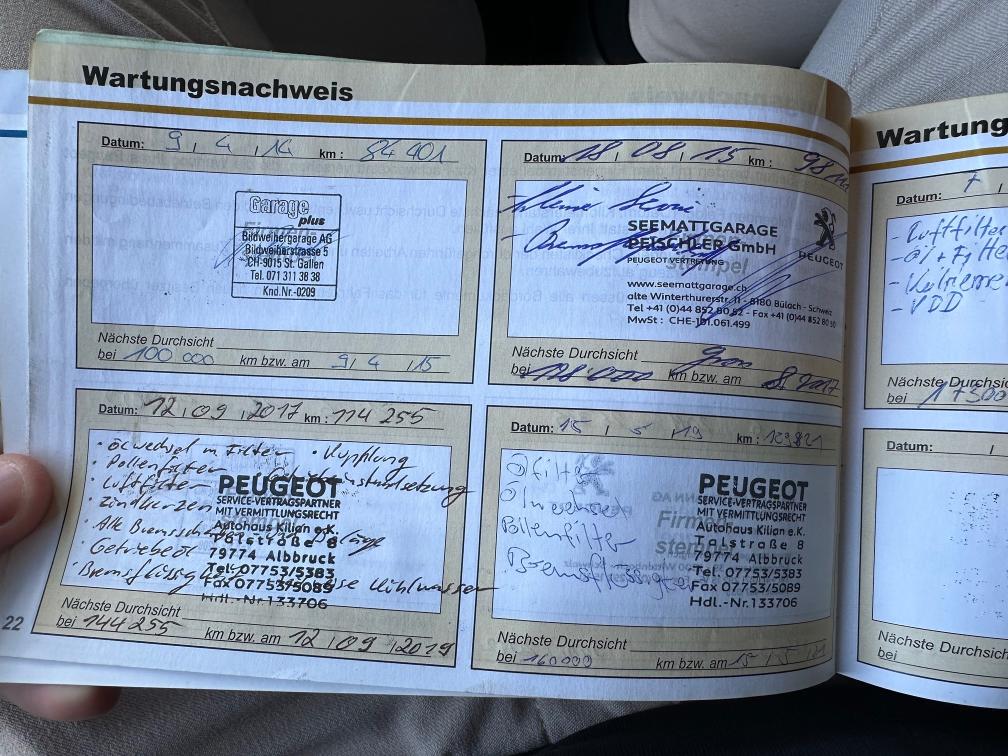 Wartungsnachweis
Datum: 9 / 4 / 14 km: 84 901
Garage
plus
Bildweihergarage AG
Bildweiherstrasse 5
CH-9015 St. Gallen
Tel. 071 311 38 38
Knd.Nr.-0209
Nächste Durchsicht
bei 100 000 km bzw. am 9 / 4 / 15
Datum: 18 / 08 / 15 km:
SEEMATTGARAGE
PEISCHLER GmbH
PEUGEOT VERTRETUNG
PEUGEOT
www.seemattgarage.ch
alte Winterthurerstr. 11 - 8180 Bülach - Schweiz
Tel +41 (0)44 852 80 52 - Fax +41 (0)44 852 80 50
MwSt: CHE-101.061.499
Nächste Durchsicht
bei 118'000 km bzw. am 8. 2017
Datum: 12 / 09 / 2017 km: 114 255
• Ölwechsel m. Filter • Kupplung
• Pollenfilter
• Luftfilter
• Zündkerzen
• Getriebeöl
Kühlwasser
PEUGEOT
SERVICE-VERTRAGSPARTNER
MIT VERMITTLUNGSRECHT
Autohaus Kilian e.K.
Talstraße 8
79774 Albbruck
Tel. 07753/5383
Fax 07753/5089
Hdl.-Nr.133706
Nächste Durchsicht
bei 144 255 km bzw. am 12 / 09 / 2019
Datum: 15 / 5 / 19 km: 129821
Ölfilter
Ölwechsel
Pollenfilter
Bremsflüssigkeit
Firmen
stempel
PEUGEOT
SERVICE-VERTRAGSPARTNER
MIT VERMITTLUNGSRECHT
Autohaus Kilian e.K.
Talstraße 8
79774 Albbruck
Tel. 07753/5383
Fax 07753/5089
Hdl.-Nr.133706
Nächste Durchsicht
bei 160000 km bzw. am 15 / 5 / 21
22
Wartung
Datum:
- Luftfilter
- Öl + Filter
- VDD
Nächste Durchsic
bei
Datum:
Nächste Durchsi
bei